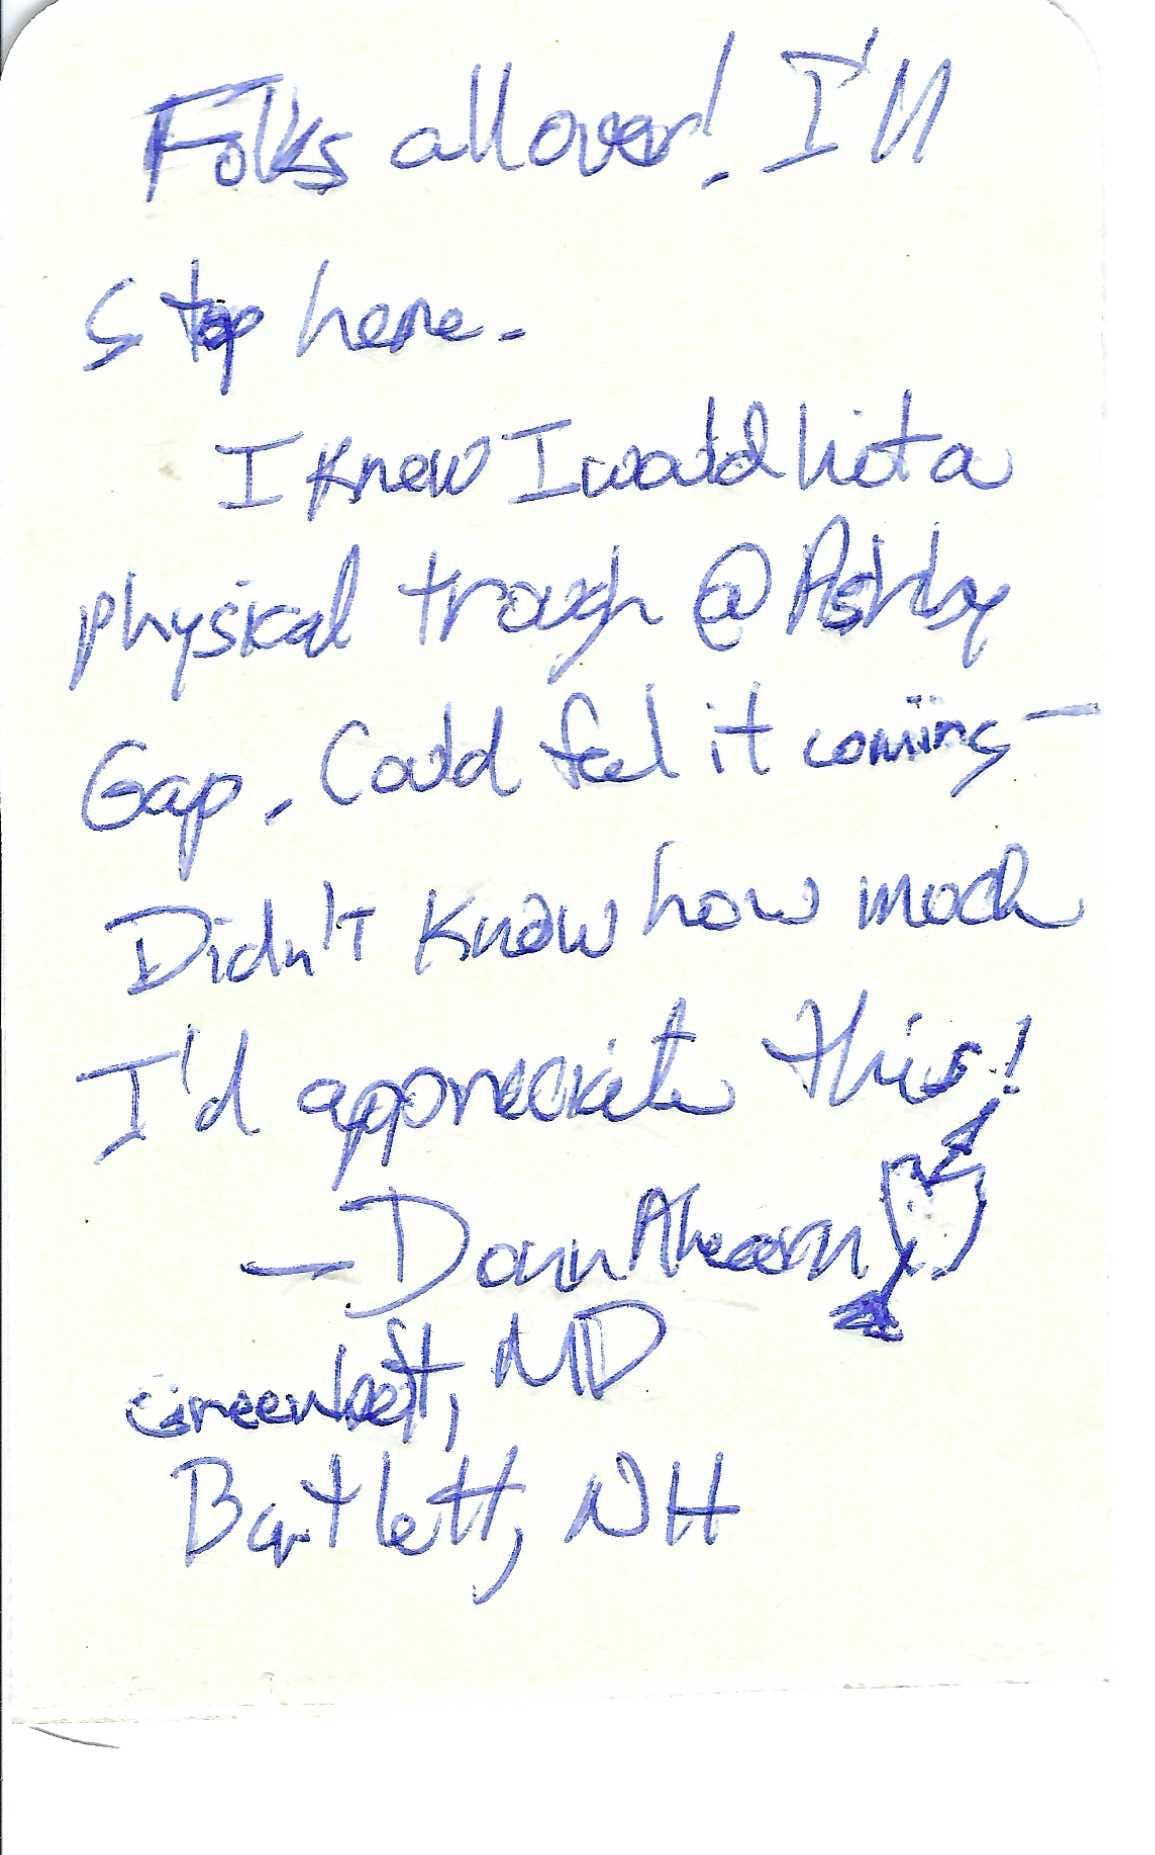 Folks all over! I'll
stop here.
I knew I would hit a
physical trough @ Ashby
Gap. Could feel it coming—
Didn't know how much
I'd appreciate this!
— Donn Ahearn
Greenbelt, MD
Bartlett, NH